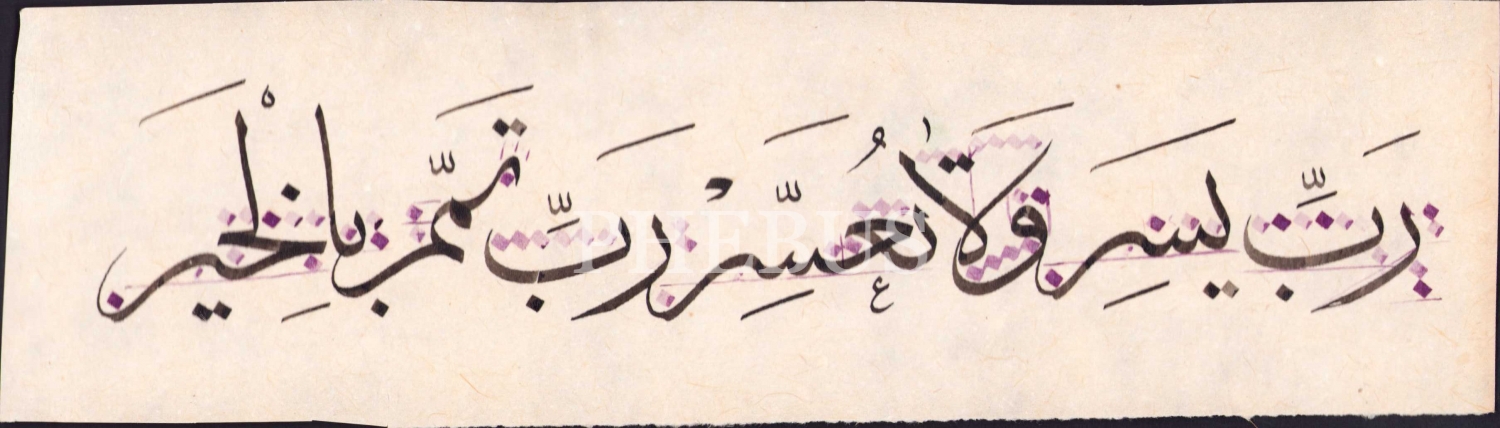 رَبِّ يَسِّرْ وَلَا تُعَسِّرْ رَبِّ تَمِّمْ بِالْخَيْرِ
PHEBUS